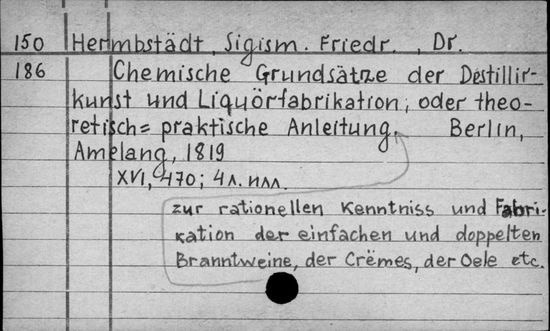 150 Hermbstädt, Sigism. Friedr., Dr.
186 Chemische Grundsätze der Destillir-
kunst und Liquörfabrikation, oder theo-
retisch= praktische Anleitung, Berlin,
Amelang, 1819
XVI, 470; 4 л. илл.
zur rationellen Kenntniss und Fabri-
kation der einfachen und doppelten
Branntweine, der Crëmes, der Oele etc.